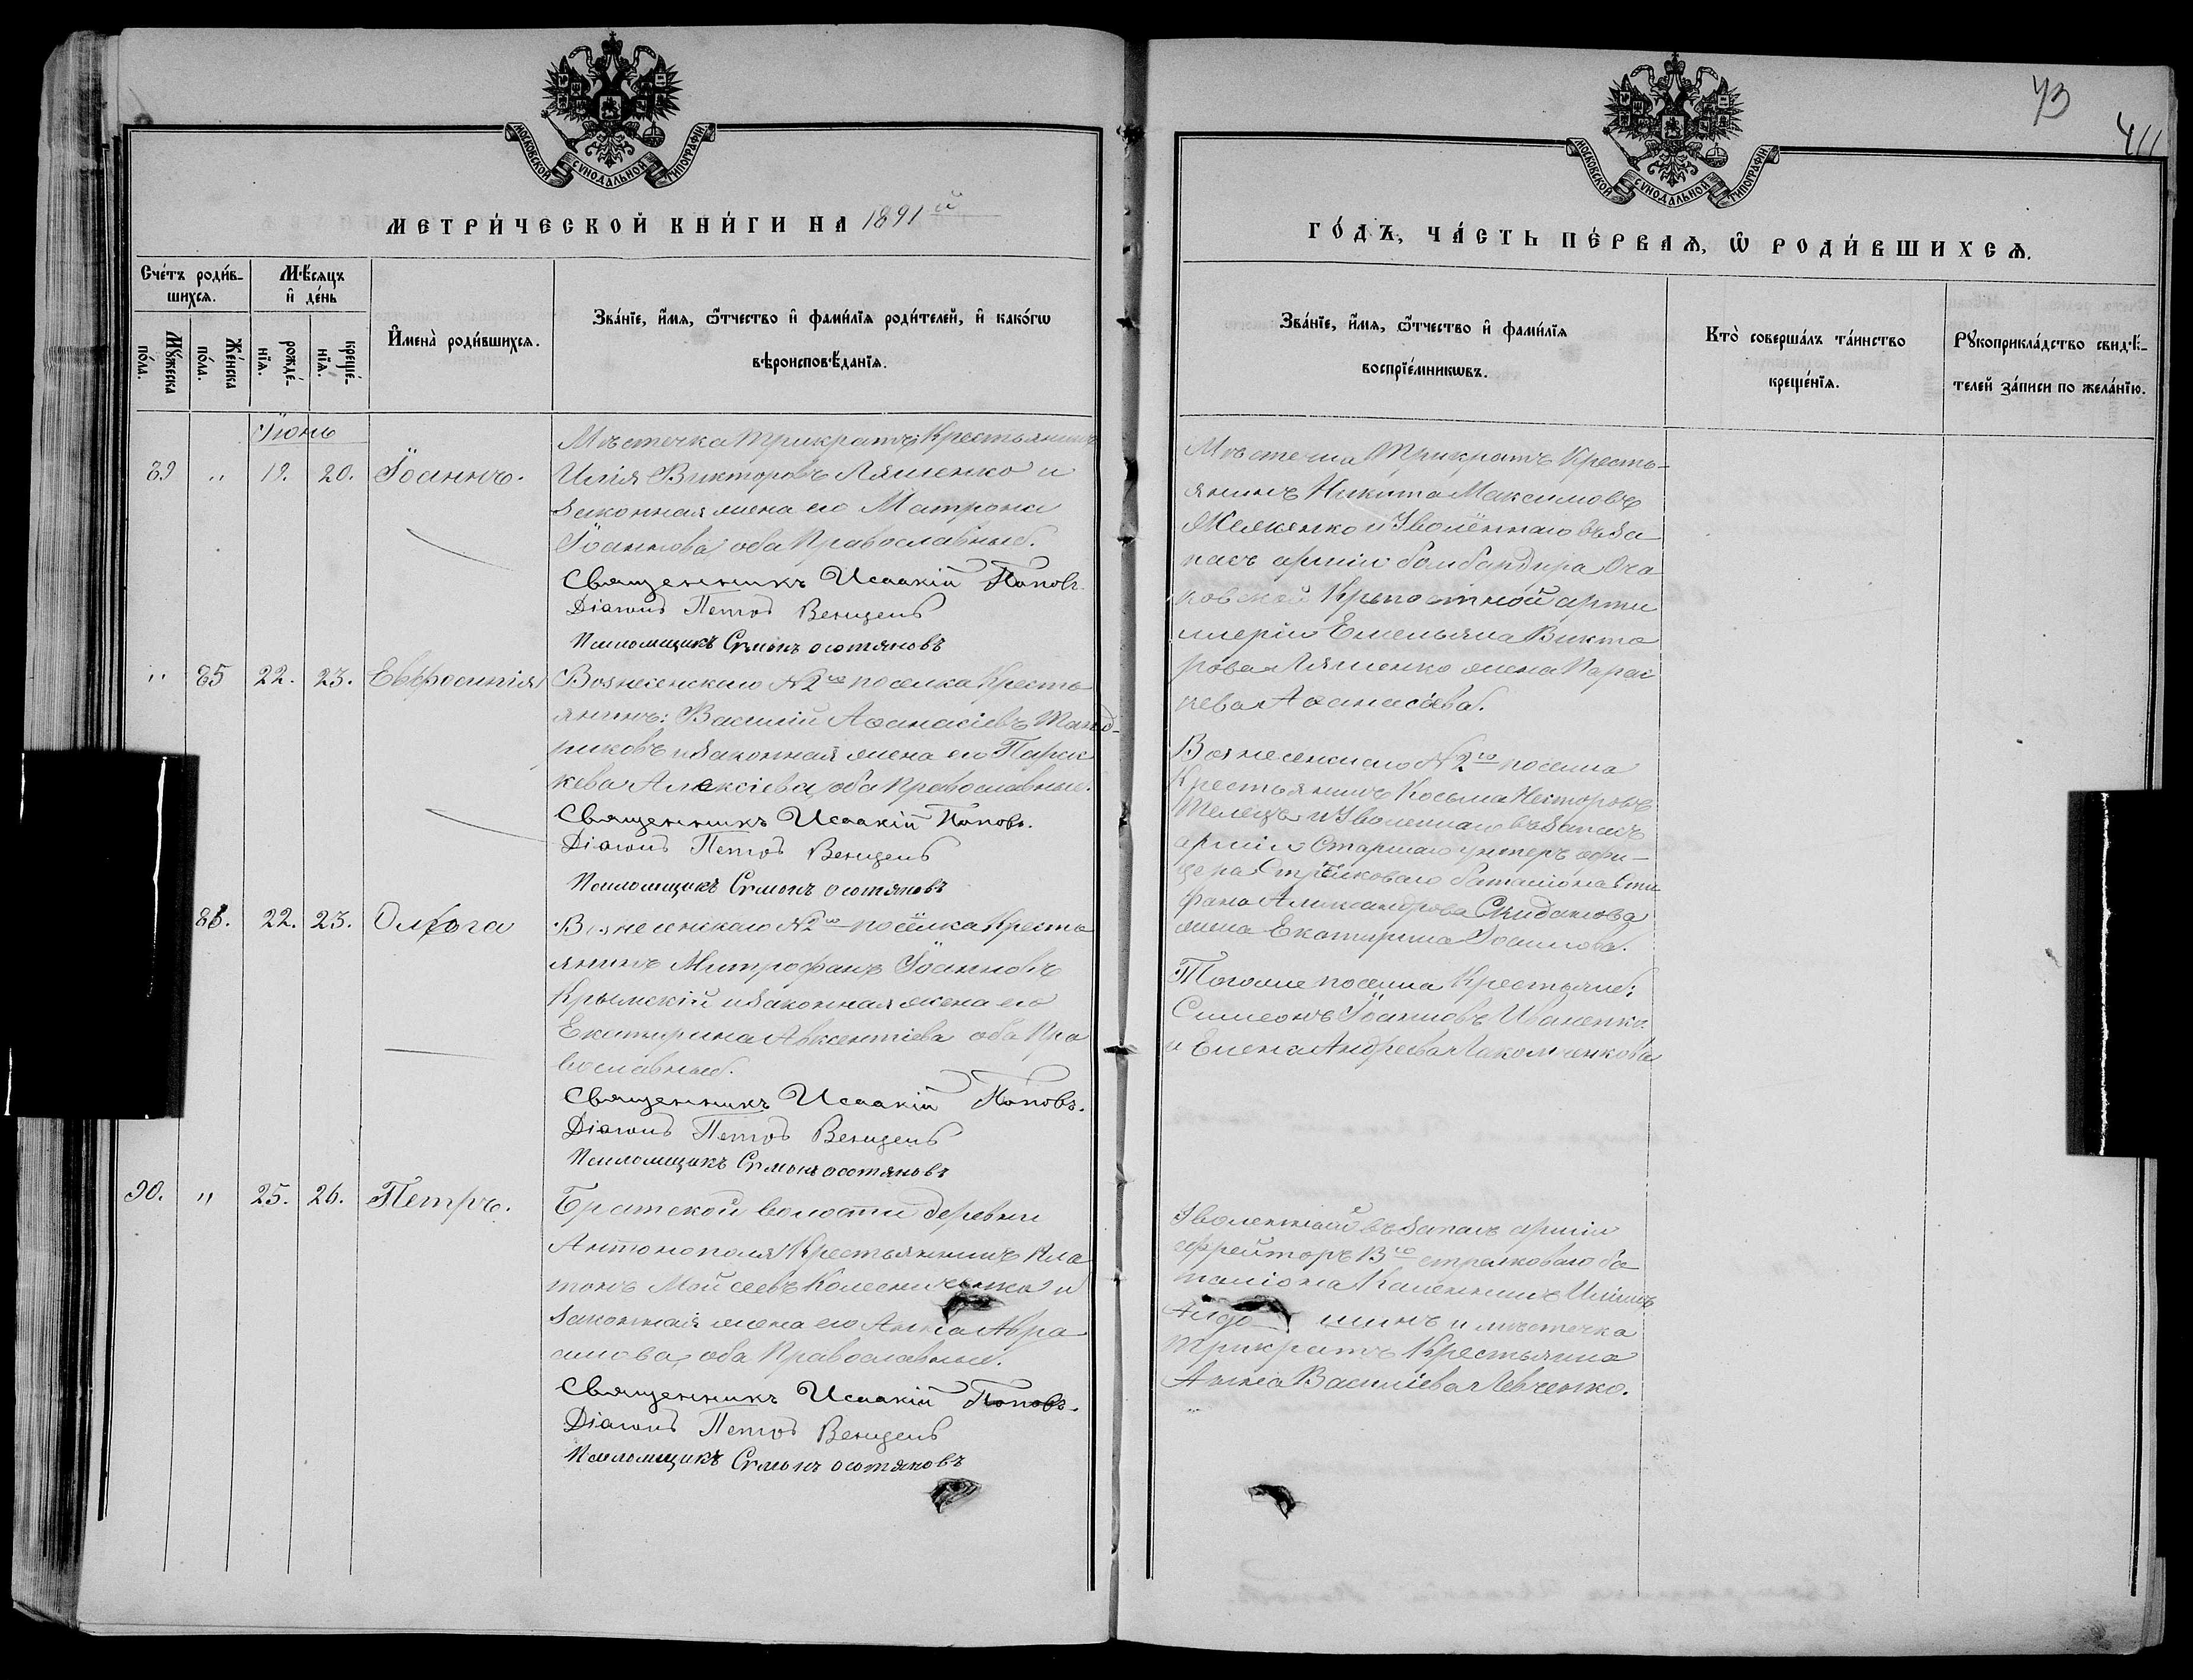 МОСКОВСКОЙ СѴНОДАЛЬНОЙ ТИПОГРАФІИ.
МЕТРИ́ЧЕСКОЙ КНИ́ГИ НА 1891й
Сче́тъ роди́вшихсѧ.
Мѣ́сѧцъ и҆ де́нь
И҆мена̀ роди́вшихсѧ.
Зва́нїе, и҆́мѧ, ѻ҆́тчество и҆ фами́лїѧ роди́телей, и҆ како́гѡ
вѣроисповѣ́данїѧ.
Мꙋ́жеска по́ла.
Же́нска по́ла.
рожде́нїѧ.
креще́нїѧ.
Іюнь
89 " 19. 20. Іоаннъ.
Мѣстечка Трикратъ Крестьянинъ
Илія Викторовъ Ляшенко и
законная жена его Матрона
Іоаннова, оба Православные.
Священникъ Исаакій Поповъ.
Діаконъ Петръ Венцель
Псаломщикъ Сѵмонъ Осотяновъ
" 85 22. 23. Евфросинія
Вознесенскаго №2го поселка Кресть
янинъ: Василій Аѳанасіевъ
и законная жена его Парас
кева Алексіева, оба Православные.
Священникъ Исаакій Поповъ.
Діаконъ Петръ Венцель
Псаломщикъ Сѵмонъ Осотяновъ
86. 22. 23. Ольга
Вознесенскаго №2го посёлка Кресть
янинъ Митрофанъ Іоанновъ
Крымскій и законная жена его
Екатерина Авксентіева оба Пра
вославные.
Священникъ Исаакій Поповъ.
Діаконъ Петръ Венцель
Псаломщикъ Сѵмонъ Осотяновъ
90. " 25. 26. Петръ.
Братской волости деревни
Антонополя Крестьянинъ Пла
тонъ Мойсеевъ и
законная жена его Анна Авра
амова, оба Православные.
Священникъ Исаакій Поповъ.
Діаконъ Петръ Венцель
Псаломщикъ Сѵмонъ Осотяновъ
73
411
МОСКОВСКОЙ СѴНОДАЛЬНОЙ ТИПОГРАФІИ.
ГО́ДЪ, ЧА́СТЬ ПЕ́РВАѦ, Ѡ҆ РОДИ́ВШИХСѦ.
Зва́нїе, и҆́мѧ, ѻ҆́тчество и҆ фами́лїѧ
воспрїе́мникѡвъ.
Кто̀ соверша́лъ та́инство
креще́нїѧ.
Рꙋкоприкла́дство свидѣ́телей за́писи по жела́нїю.
Мѣстечка Трикратъ Кресть-
янинъ Никита Максимовъ
и Уволеннаго въ за
пасъ арміи бомбардира Оча
ковской Крѣпостной арти
леріи Емельяна Викто
рова Ляшенко жена Парас
кева Аѳанасіева.
Вознесенскаго №2го поселка
Крестьянинъ Косьма Несторовъ
Телецъ и Уволеннаго въ запасъ
арміи Старшаго унтеръ офи-
цера Стрѣлковаго баталіона
Александрова
жена Екатерина
Тогоже поселка Крестьяне:
Симеонъ Іоанновъ Иваненко
и Елена Андреева
Уволенный въ запасъ арміи
ефрейторъ стрелковаго ба
таліона
и мѣстечка
Трикратъ Крестьянка
Анна Василіева Левченко.